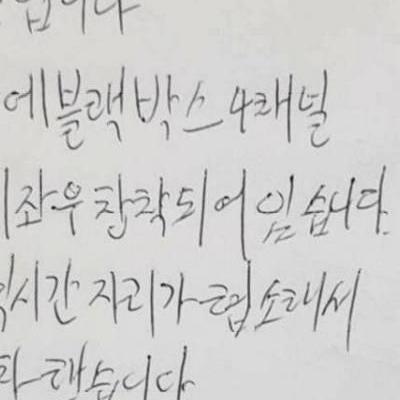 니다
에블랙박스 4채널
좌우 장착되어 임습니다.
시간 자리가 협소해서
햇습니다